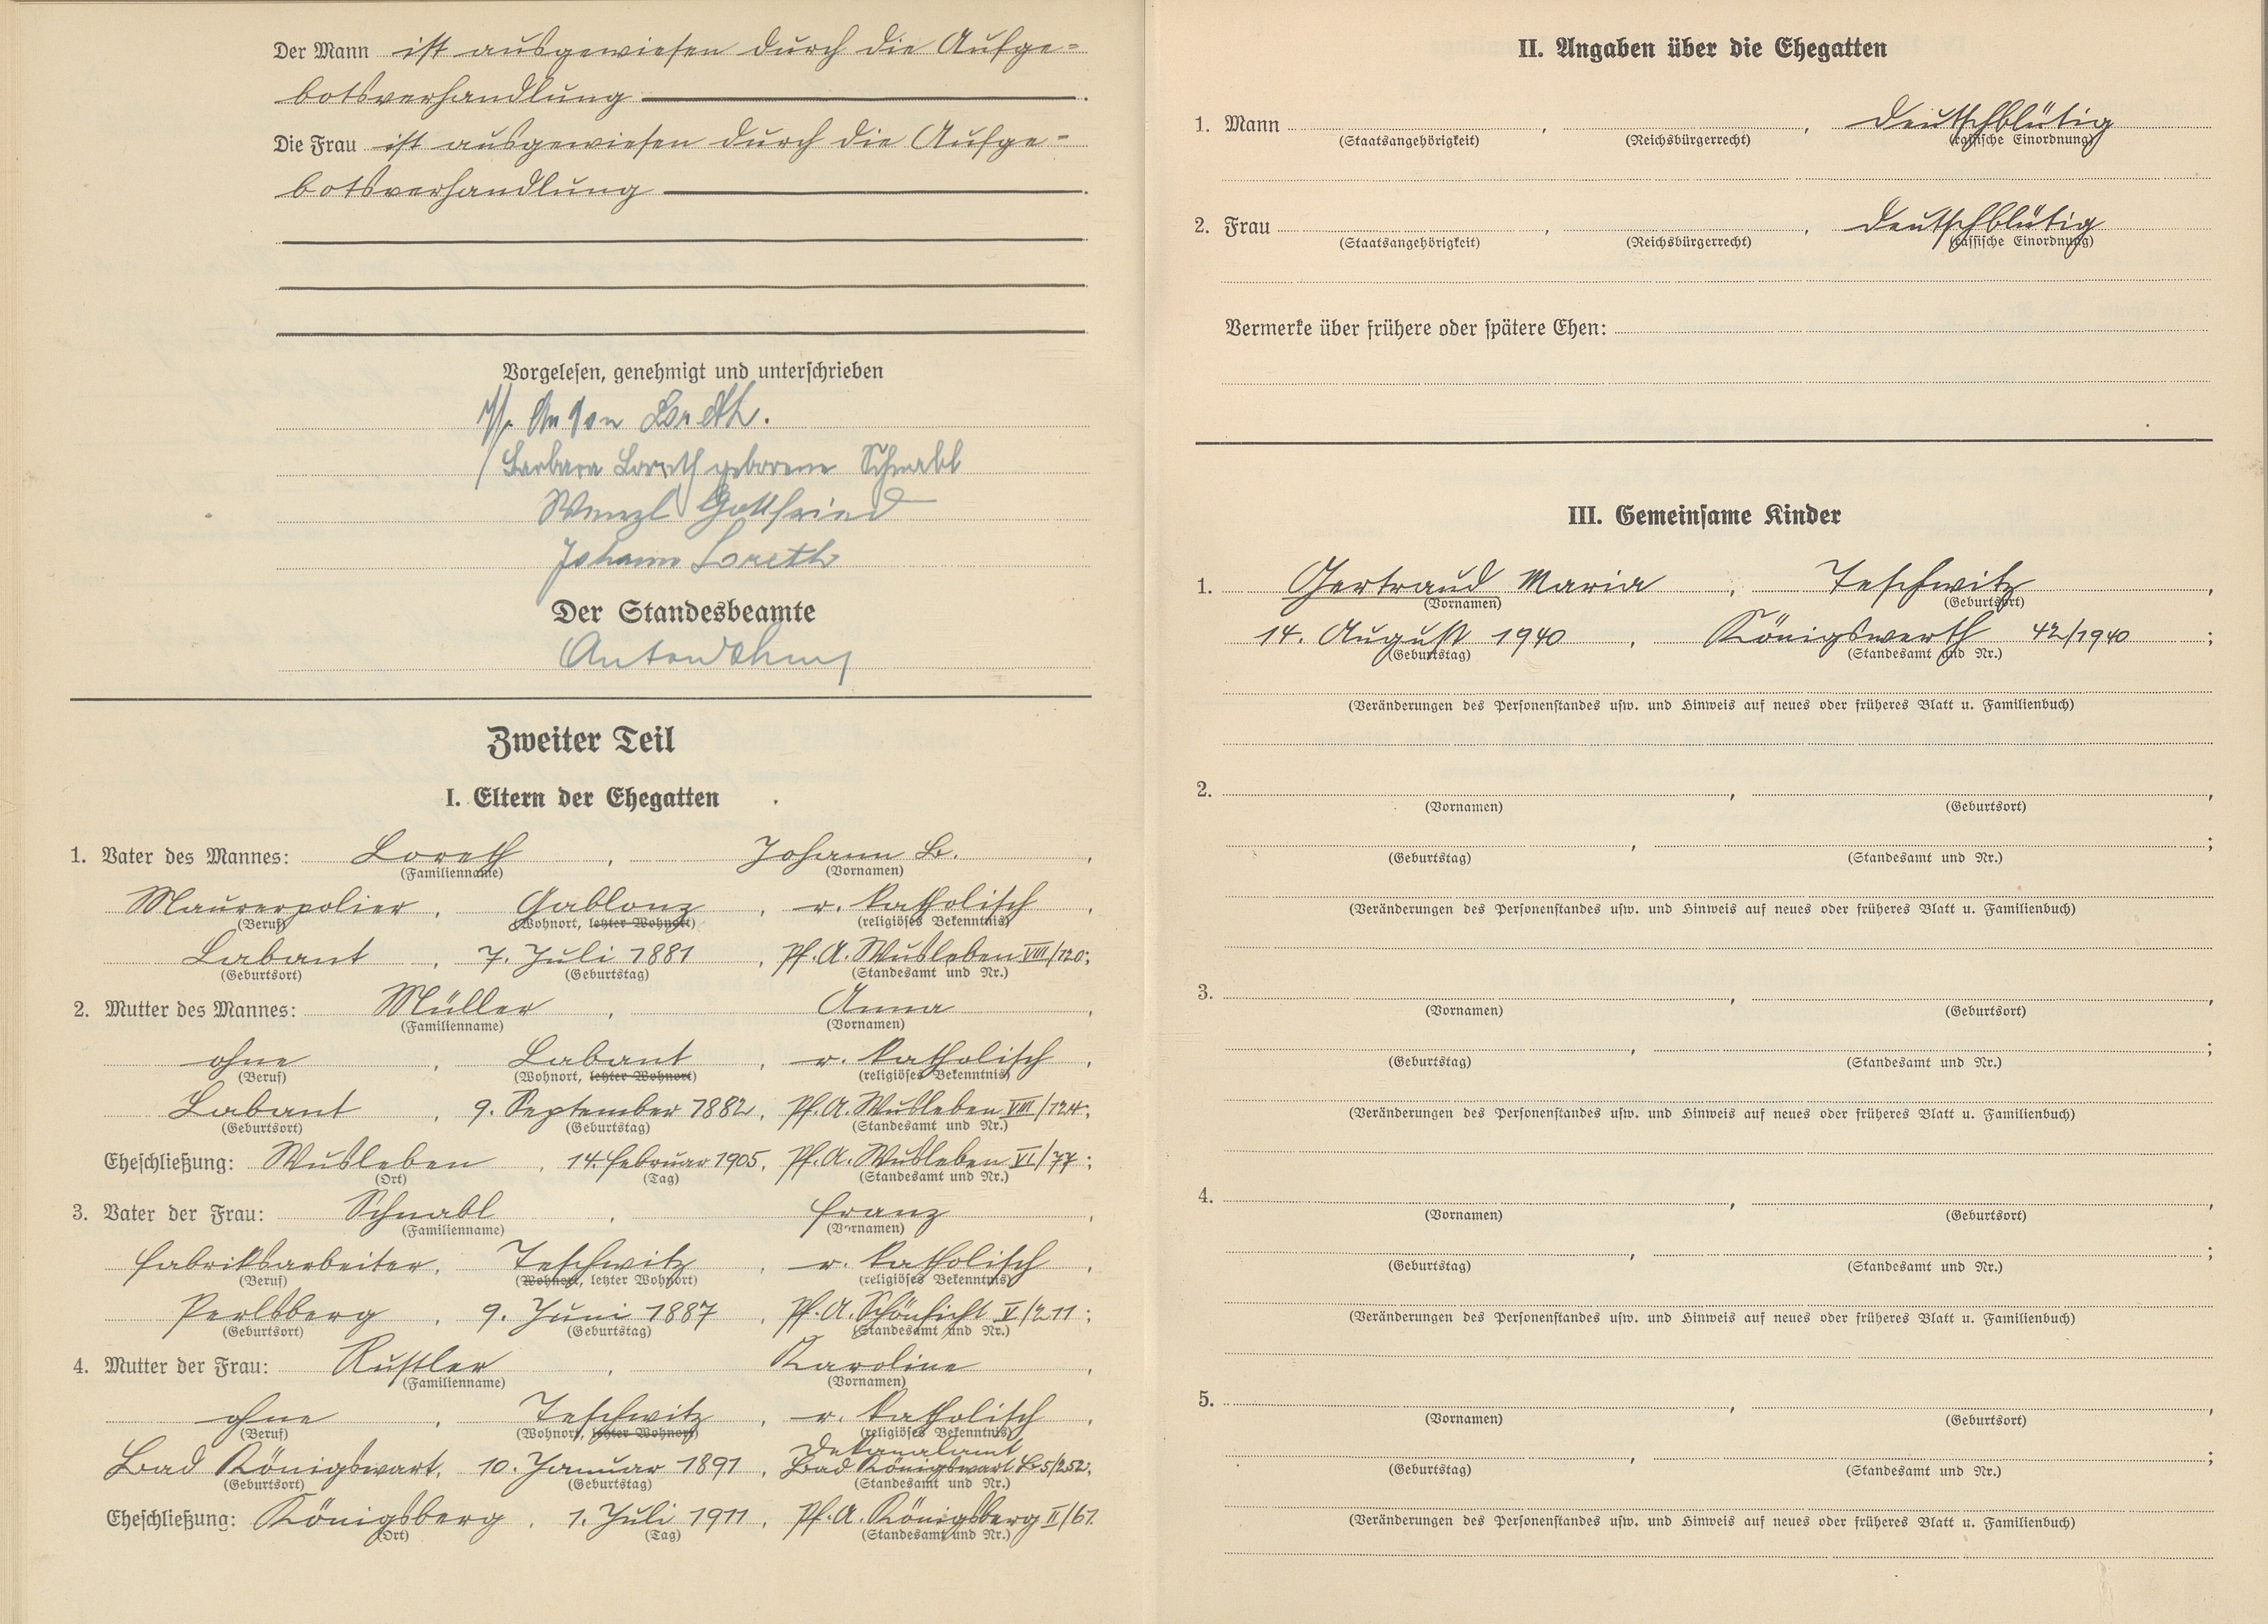 Der Mann ist ausgewiesen durch die Aufge=
botsverhandlung
Die Frau ist ausgewiesen durch die Aufge=
botsverhandlung
Vorgelesen, genehmigt und unterschrieben
Anton Loreth.
Barbara Loreth geborene Schnabl
Wenzl Gottfried
Johann Loreth
Der Standesbeamte
Anton
Zweiter Teil
I. Eltern der Ehegatten
1. Vater des Mannes: Loreth, Johann B.,
(Familienname) (Vornamen)
Maurerpolier, Gablonz, r. katholisch,
(Beruf) (Wohnort, letzter Wohnort) (religiöses Bekenntnis)
Labant, 7. Juli 1881, Pf. A. Wusleben VIII/120;
(Geburtsort) (Geburtstag) (Standesamt und Nr.)
2. Mutter des Mannes: Müller, Anna,
(Familienname) (Vornamen)
ohne, Labant, r. katholisch,
(Beruf) (Wohnort, letzter Wohnort) (religiöses Bekenntnis)
Labant, 9. September 1882, Pf. A. Wusleben VIII/124;
(Geburtsort) (Geburtstag) (Standesamt und Nr.)
Eheschließung: Wusleben, 14. Februar 1905, Pf. A. Wusleben VI/77;
(Ort) (Tag) (Standesamt und Nr.)
3. Vater der Frau: Schnabl, Franz,
(Familienname) (Vornamen)
Fabriksarbeiter, Teschwitz, r. katholisch,
(Beruf) (Wohnort, letzter Wohnort) (religiöses Bekenntnis)
Perlsberg, 9. Juni 1887, Pf. A. Schönficht V/211;
(Geburtsort) (Geburtstag) (Standesamt und Nr.)
4. Mutter der Frau: Rustler, Karoline,
(Familienname) (Vornamen)
ohne, Teschwitz, r. katholisch,
(Beruf) (Wohnort, letzter Wohnort) (religiöses Bekenntnis)
Dekanalamt
Bad Königswart, 10. Januar 1891, Bad Königswart B5/252,
(Geburtsort) (Geburtstag) (Standesamt und Nr.)
Eheschließung: Königsberg, 1. Juli 1911, Pf. A. Königsberg II/61.
(Ort) (Tag) (Standesamt und Nr.)
II. Angaben über die Ehegatten
1. Mann , , deutschblütig
(Staatsangehörigkeit) (Reichsbürgerrecht) (rassische Einordnung)
2. Frau , , deutschblütig
(Staatsangehörigkeit) (Reichsbürgerrecht) (rassische Einordnung)
Vermerke über frühere oder spätere Ehen:
III. Gemeinsame Kinder
1. Gertraud Maria, Teschwitz,
(Vornamen) (Geburtsort)
14. August 1940, Königswerth 42/1940;
(Geburtstag) (Standesamt und Nr.)
(Veränderungen des Personenstandes usw. und Hinweis auf neues oder früheres Blatt u. Familienbuch)
2. , ,
(Vornamen) (Geburtsort)
, ;
(Geburtstag) (Standesamt und Nr.)
(Veränderungen des Personenstandes usw. und Hinweis auf neues oder früheres Blatt u. Familienbuch)
3. , ,
(Vornamen) (Geburtsort)
, ;
(Geburtstag) (Standesamt und Nr.)
(Veränderungen des Personenstandes usw. und Hinweis auf neues oder früheres Blatt u. Familienbuch)
4. , ,
(Vornamen) (Geburtsort)
, ;
(Geburtstag) (Standesamt und Nr.)
(Veränderungen des Personenstandes usw. und Hinweis auf neues oder früheres Blatt u. Familienbuch)
5. , ,
(Vornamen) (Geburtsort)
, ;
(Geburtstag) (Standesamt und Nr.)
(Veränderungen des Personenstandes usw. und Hinweis auf neues oder früheres Blatt u. Familienbuch)